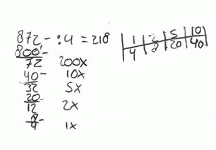 872,- : 4 = 218
800,-
72 200x
40- 10x
32 5x
20
12 2x
8
4 1x
1 2 5 10
4 20 40